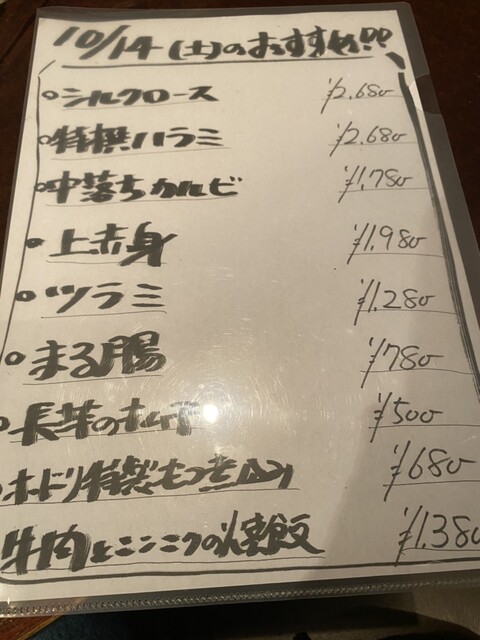 10/14(土)のおすすめ!!
○シルクロース ¥2.680
○特撰ハラミ ¥2.680
○中落ちカルビ ¥1.780
○上赤身 ¥1.980
○ツラミ ¥1.280
○まる腸 ¥780
○長芋のキムチ ¥500
○ホドリ特製もつ煮込み ¥680
牛肉とニンニクの焼飯 ¥1.380